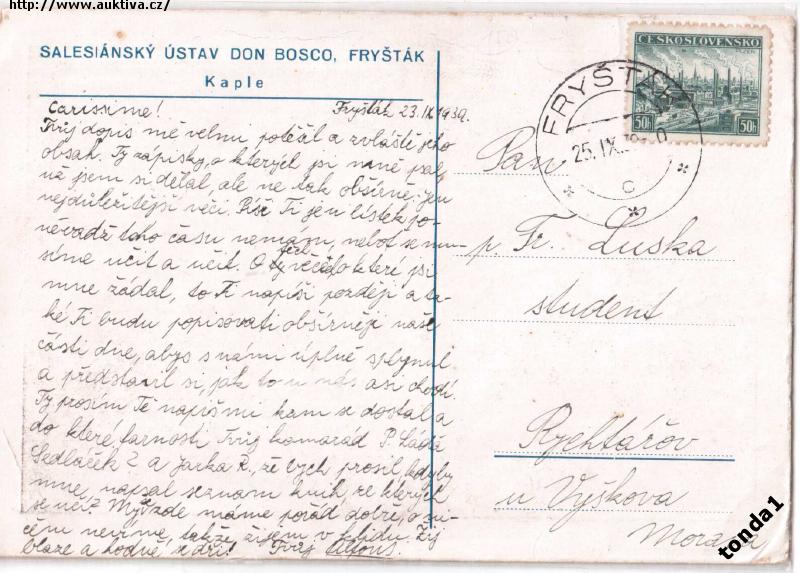 http://www.auktiva.cz/
SALESIÁNSKÝ ÚSTAV DON BOSCO, FRYŠTÁK
Kaple
Carissime! Fryšták 23.IX.1939.
Tvůj dopis mě velmi potěšil a zvláště jeho
obsah. Ty zápisky, o kterých jsi mně psal,
už jsem si dělal, ale ne tak obšírně: jen
nejdůležitější věci. Píši Ti jen lístek po-
něvadž toho času nemám, neboť se mu-
síme učit a učit. O ty věci o které jsi
mne žádal, to Ti napíši později a ta-
ké Ti budu popisovati obšírněji naše
části dne, abys s námi úplně splynul
a představil si, jak to u nás asi chodí.
Ty prosím Tě napiš mi kam se dostal a
do které farnosti Tvůj kamarád P. Láďa
Sedláček? a Jarka R., že bych prosil kdyby
mně napsal seznam knih, ze kterých
se učí? My zde máme pořád dobře, o ni-
čem nevíme, takže žijem v klidu. Žij
blaze a hodně se drž! Tvůj Alfons.
ČESKOSLOVENSKO
50h 50h
FRYŠTÁK
25.IX.
C
Pan
p. Fr. Luska
student
Rychtářov
u Vyškova
Morava
tonda1